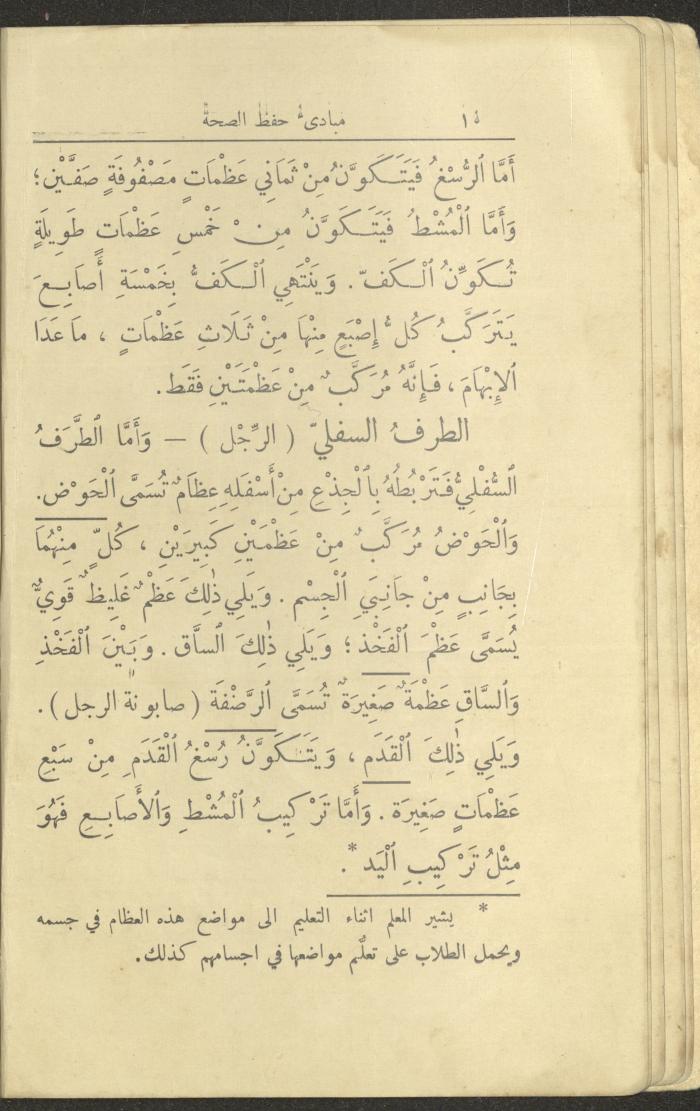 ١٤ مبادئ حفظ الصحة
أَمَّا ٱلرُّسْغُ فَيَتَكَوَّنُ مِنْ ثَمَانِي عَظْمَاتٍ مَصْفُوفَةٍ صَفَّيْنِ؛
وَأَمَّا ٱلْمُشْطُ فَيَتَكَوَّنُ مِنْ خَمْسِ عَظْمَاتٍ طَوِيلَةٍ
تُكَوِّنُ ٱلْكَفّ. وَيَنْتَهِي ٱلْكَفُّ بِخَمْسَةِ أَصَابِعَ
يَتَرَكَّبُ كُلُّ إِصْبَعٍ مِنْهَا مِنْ ثَلَاثِ عَظْمَاتٍ، مَا عَدَا
ٱلإِبْهَامَ، فَإِنَّهُ مُرَكَّبٌ مِنْ عَظْمَتَيْنِ فَقَط.
الطرفُ السفليّ (الرِّجْل) — وَأَمَّا ٱلطَّرَفُ
ٱلسُّفْلِيُّ فَتَرْبُطُهُ بِٱلْجِذْعِ مِنْ أَسْفَلِهِ عِظَامٌ تُسَمَّى ٱلْحَوْض.
وَٱلْحَوْضُ مُرَكَّبٌ مِنْ عَظْمَيْنِ كَبِيرَيْنِ، كُلٌّ مِنْهُمَا
بِجَانِبٍ مِنْ جَانِبَيِ ٱلْجِسْم. وَيَلِي ذٰلِكَ عَظْمٌ غَلِيظٌ قَوِيٌّ
يُسَمَّى عَظْمَ ٱلْفَخْذ؛ وَيَلِي ذٰلِكَ ٱلسَّاق. وَبَيْنَ ٱلْفَخْذِ
وَٱلسَّاقِ عَظْمَةٌ صَغِيرَةٌ تُسَمَّى ٱلرَّضْفَة (صابونة الرجل).
وَيَلِي ذٰلِكَ ٱلْقَدَم، وَيَتَكَوَّنُ رُسْغُ ٱلْقَدَمِ مِنْ سَبْعِ
عَظْمَاتٍ صَغِيرَة. وَأَمَّا تَرْكِيبُ ٱلْمُشْطِ وَٱلأَصَابِعِ فَهُوَ
مِثْلُ تَرْكِيبِ ٱلْيَد*.
* يشير المعلم اثناء التعليم الى مواضع هذه العظام في جسمه
ويحمل الطلاب على تعلّم مواضعها في اجسامهم كذلك.